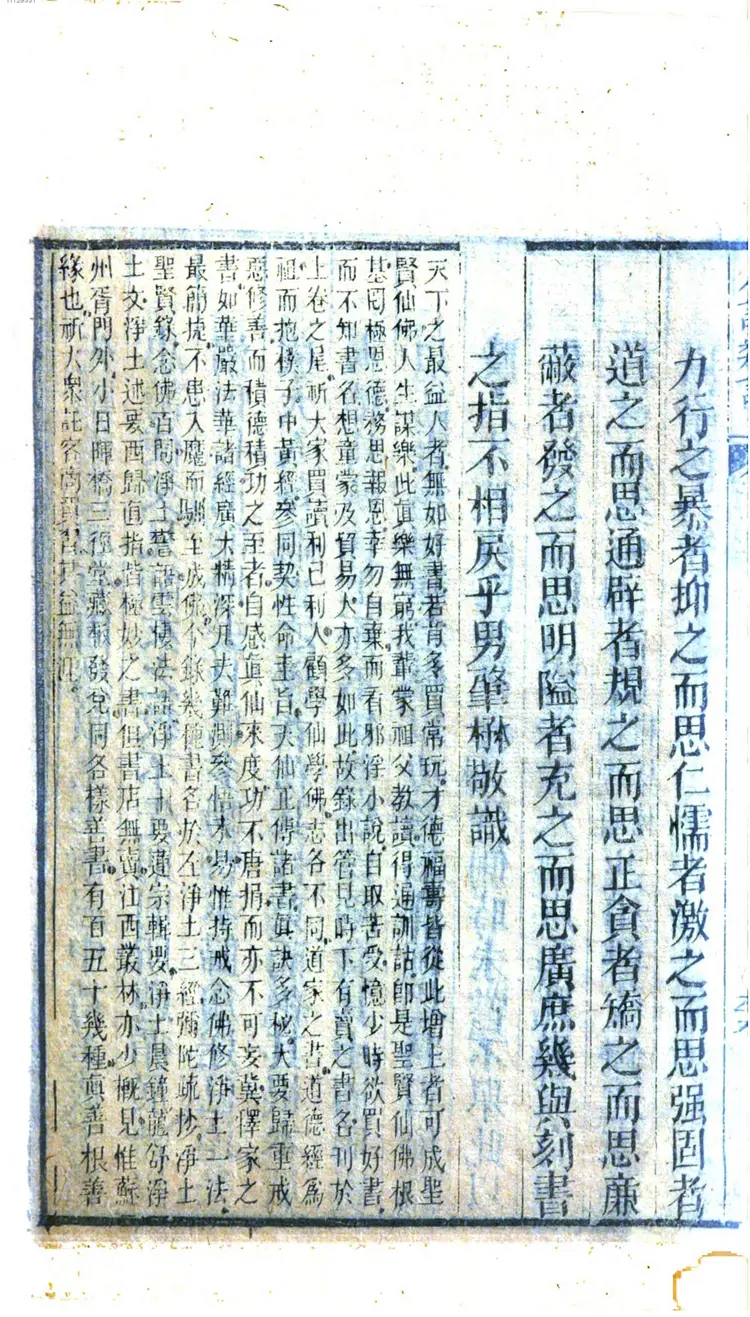 力行之暴者抑之而思仁懦者激之而思强固者
道之而思通辟者規之而思正貪者矯之而思廉
蔽者發之而思明隘者充之而思廣庶幾與刻書
之指不相戾乎男肇楙敬識
天下之最益人者無如好書若肯多買常玩才德福壽皆從此增上者可成聖
賢仙佛人生謀樂此眞樂無窮我輩蒙祖父教讀得通訓詁即是聖賢仙佛根
基罔極恩德務思報恩幸勿自棄而看邪淫小說自取苦受憶少時欲買好書
而不知書名想童蒙及貿易人亦多如此故錄出管見時下有賣之書名刊於
上卷之尾祈大家買讀利己利人顧學仙學佛志各不同道家之書道德經爲
祖而抱樸子中黃經參同契性命圭旨天仙正傳諸書眞訣多秘大要歸重戒
惡修善而積德積功之至者自感眞仙來度功不唐捐而亦不可妄冀釋家之
書如華嚴法華諸經廣大精深凡夫難測參悟未易惟持戒念佛修淨土一法
最簡捷不患入魔而馴至成佛今錄幾種書名於左淨土三經彌陀疏抄淨土
聖賢錄念佛百問淨土警語雲棲法語淨土十要蓮宗輯要淨土晨鐘龍舒淨
土文淨土述要西歸直指皆極妙之書但書店無賣江西叢林亦少概見惟蘇
州胥門外小日暉橋三徑堂藏板發兌同各樣善書有百五十幾種眞善根善
緣也祈大衆託客商買習其益無涯